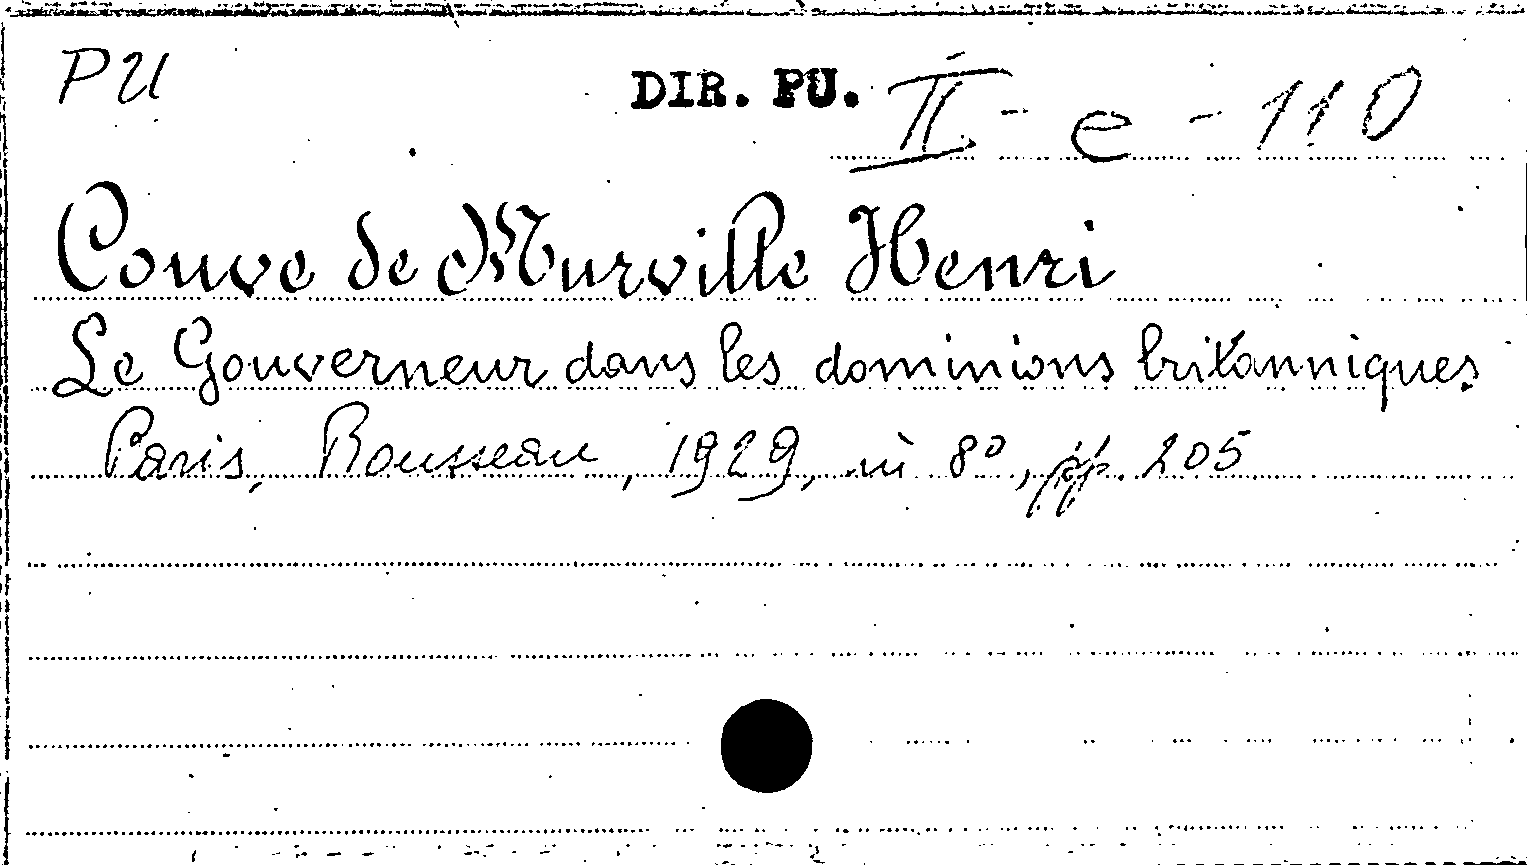 PU DIR. PU. II - e - 110
Couve de Murville Henri
Le Gouverneur dans les dominions britanniques
Paris, Rousseau, 1929, in 8º, pp. 205